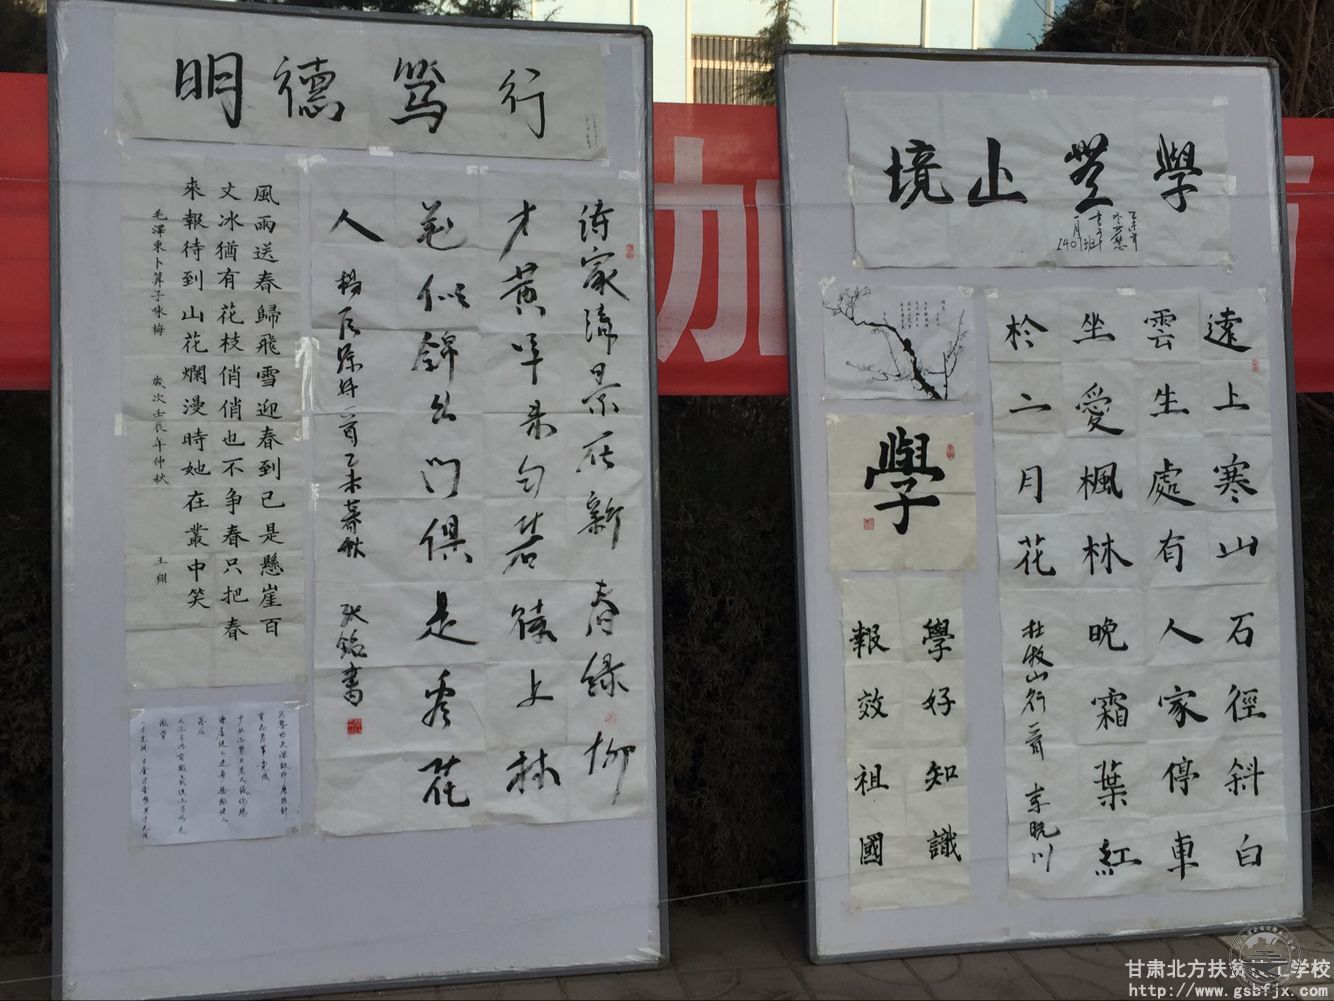 明德篤行
風雨送春歸飛雪迎春到已是懸崖百
丈冰猶有花枝俏俏也不争春只把春
來報待到山花爛漫時她在叢中笑
毛澤東卜算子咏梅 歲次壬辰年仲秋 王翔
詩家清景在新春綠柳
才黄半未匀若待上林
花似錦出門俱是看花
人 楊巨源詩一首乙未暮秋 張銘書
加
學無止境
遠上寒山石徑斜白
雲生處有人家停車
坐愛楓林晚霜葉紅
於二月花 杜牧山行一首
學
學好知識
報效祖國
甘肃北方扶贫技工学校
http://www.gsbfjx.com